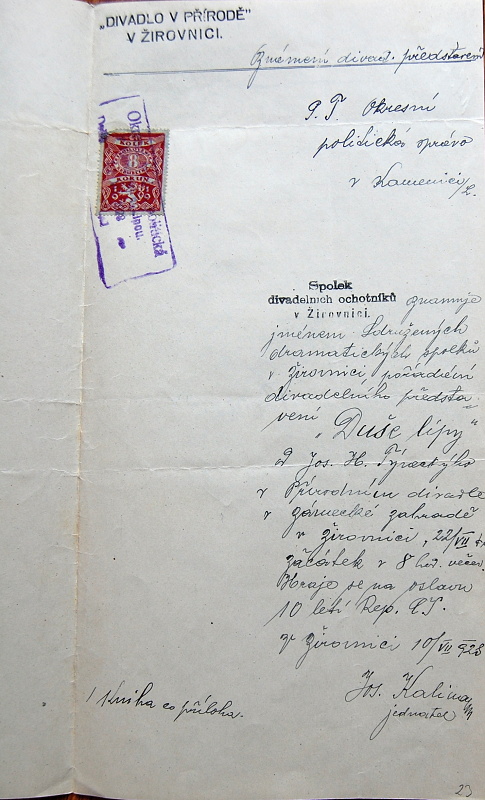 „DIVADLO V PŘÍRODĚ"
V ŽIROVNICI.
Známení divad. představení
P. T. Okresní
politické správě
v Kamenici/L.
KOLEK
8
KORUN
Spolek
divadelních ochotníků oznamuje
v Žirovnici.
jménem Sdružených
dramatických spolků
v Žirovnici pořádání
divadelního předsta-
vení
„Duše lípy"
Jos. H.
v Přírodním divadle
v zámecké zahradě
v Žirovnici, 22/VII
začátek v 8 hod. večer.
Hraje se na oslavu
10 letí Rep. ČS.
V Žirovnici 10/VII 928
Jos. Kalina
jednatel
1 Kniha co příloha.
23